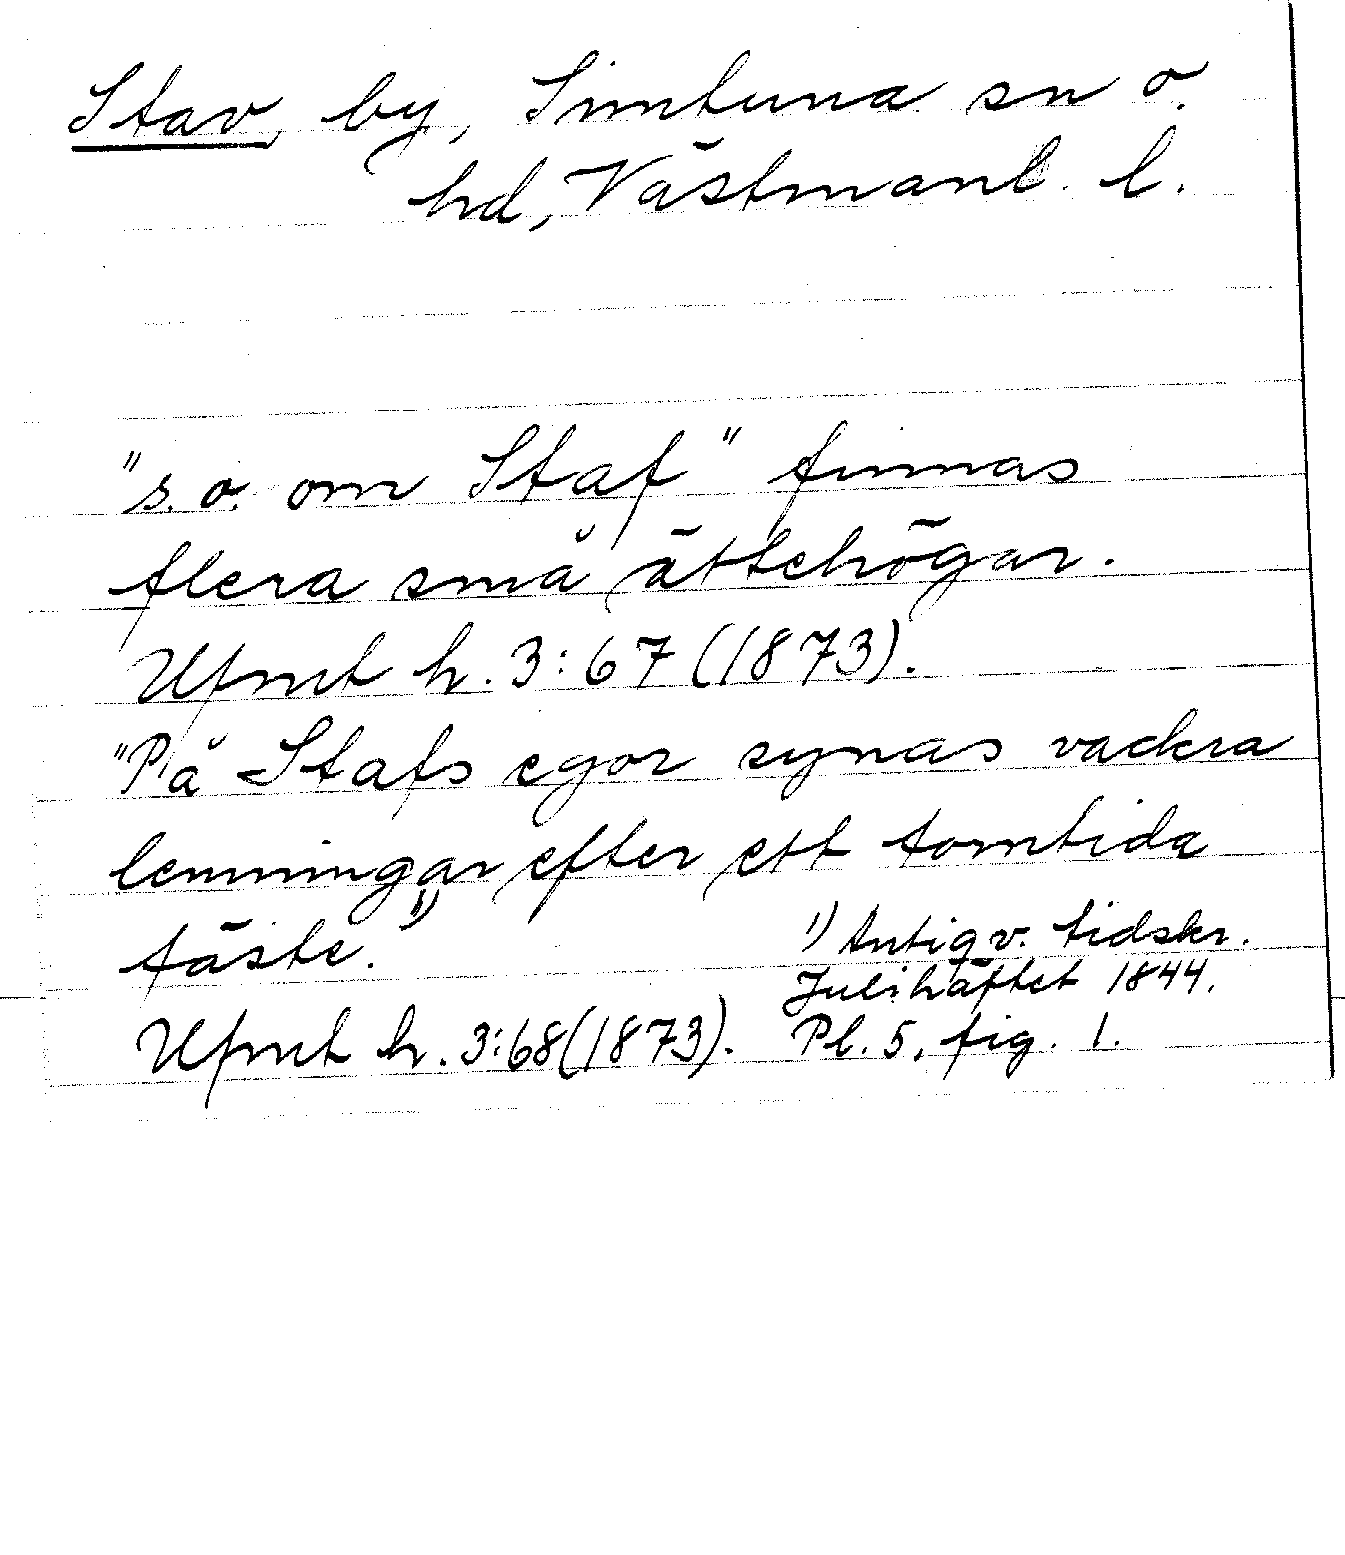 Stav, by, Simtuna sn o.
hd, Västmanl. l.
"s.o. om Staf" finnas
flera små ättehögar.
Upmt h. 3:67 (1873).
"På Stafs egor synas vackra
lemningar efter ett forntida
fäste."¹⁾
Upmt h. 3:68 (1873).
¹⁾ Antiqv. tidskr.
Julihäftet 1844.
Pl. 5, fig. 1.